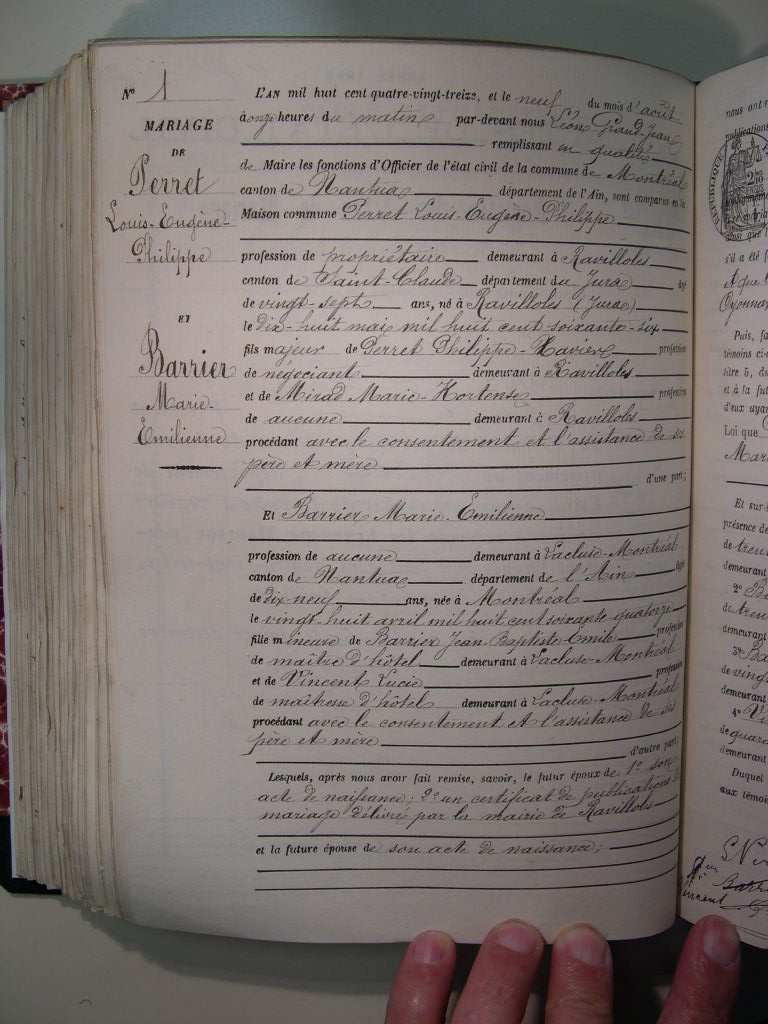 N° 1
MARIAGE
DE
Perret
Louis-Eugène-
Philippe
ET
Barrier
Marie-
Emilienne
L'AN mil huit cent quatre-vingt-treize, et le neuf du mois d'août
à onze heures du matin par-devant nous Léon Grand-Jean
remplissant en qualité
de Maire les fonctions d'Officier de l'état civil de la commune de Montréal
canton de Nantua département de l'Ain, sont comparus en la
Maison commune Perret Louis-Eugène-Philippe
profession de propriétaire demeurant à Ravilloles
canton de Saint-Claude département du Jura âgé
de vingt-sept ans, né à Ravilloles (Jura)
le dix-huit mai mil huit cent soixante-six
fils majeur de Perret Philippe-Xavier profession
de négociant demeurant à Ravilloles
et de Mirad Marie-Hortense profession
de aucune demeurant à Ravilloles
procédant avec le consentement et l'assistance de ses
père et mère
d'une part;
Et Barrier Marie-Emilienne
profession de aucune demeurant à Lacluse-Montréal
canton de Nantua département de l'Ain âgée
de dix-neuf ans, née à Montréal
le vingt-huit avril mil huit cent soixante quatorze
fille mineure de Barrier Jean-Baptiste-Emile profession
de maître d'hôtel demeurant à Lacluse-Montréal
et de Vincent Lucie profession
de maîtresse d'hôtel demeurant à Lacluse-Montréal
procédant avec le consentement et l'assistance de ses
père et mère
d'autre part;
Lesquels, après nous avoir fait remise, savoir, le futur époux de 1° son
acte de naissance; 2° un certificat de publications de
mariage délivré par la mairie de Ravilloles
et la future épouse de son acte de naissance;
nous ont r
publication
s'il a été f
Oyonnax
Puis, fa
témoins ci-
titre 5, de
et à la fut
d'eux ayan
Loi que
Mar
Et sur-
présence de
de tren
demeurant
2° Be
de tren
demeurant
3° Ba
de vingt
demeurant
4° Vi
de quara
demeurant
Duquel
aux témoi
Barri
Vincent